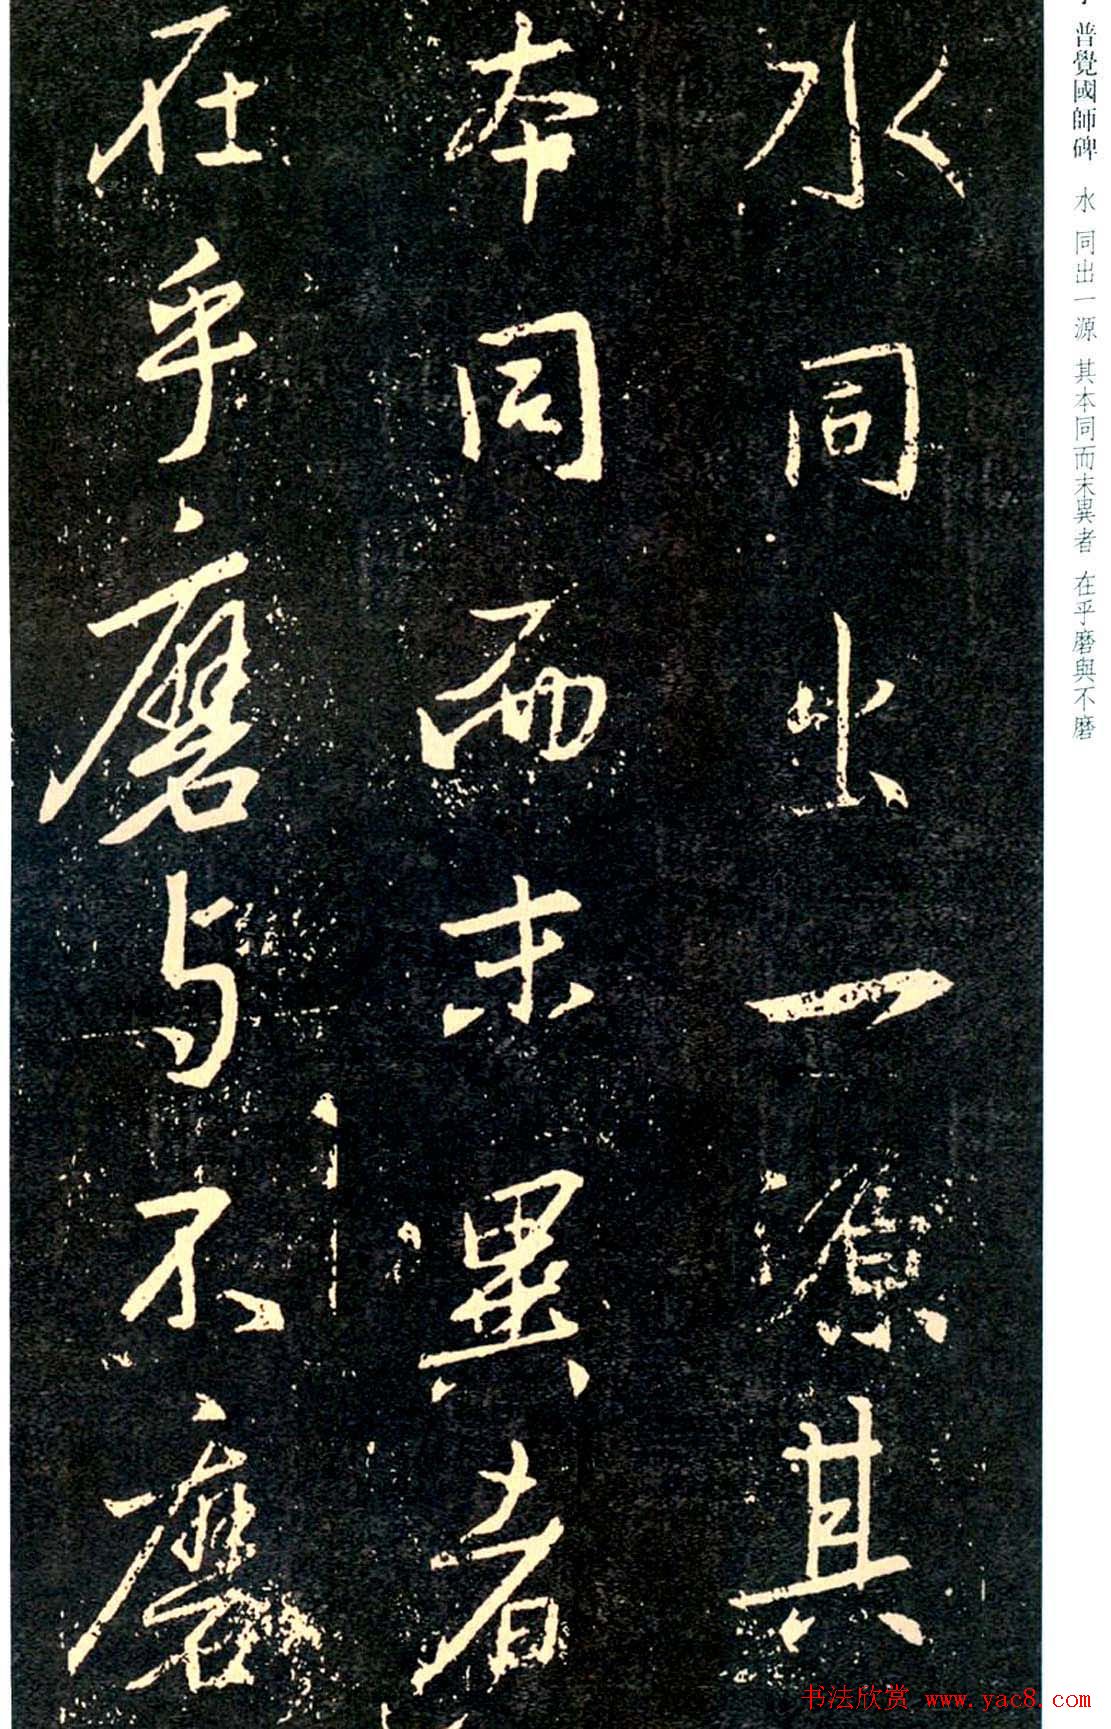 水同出一源其
本同而末異者
在乎磨与不磨
普覺國師碑 水 同出一源 其本同而末異者 在乎磨與不磨
书法欣赏 www.yac8.com